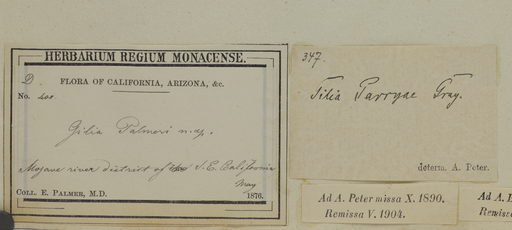 HERBARIUM REGIUM MONACENSE.
D
FLORA OF CALIFORNIA, ARIZONA, &c.
No. 400
Gilia Palmeri n. sp.
Mojave river district of S. E. California
May
COLL. E. PALMER, M.D. 1876.
347.
Gilia Parryae Gray.
determ. A. Peter.
Ad A. Peter missa X. 1890.
Remissa V. 1904.
Ad A.